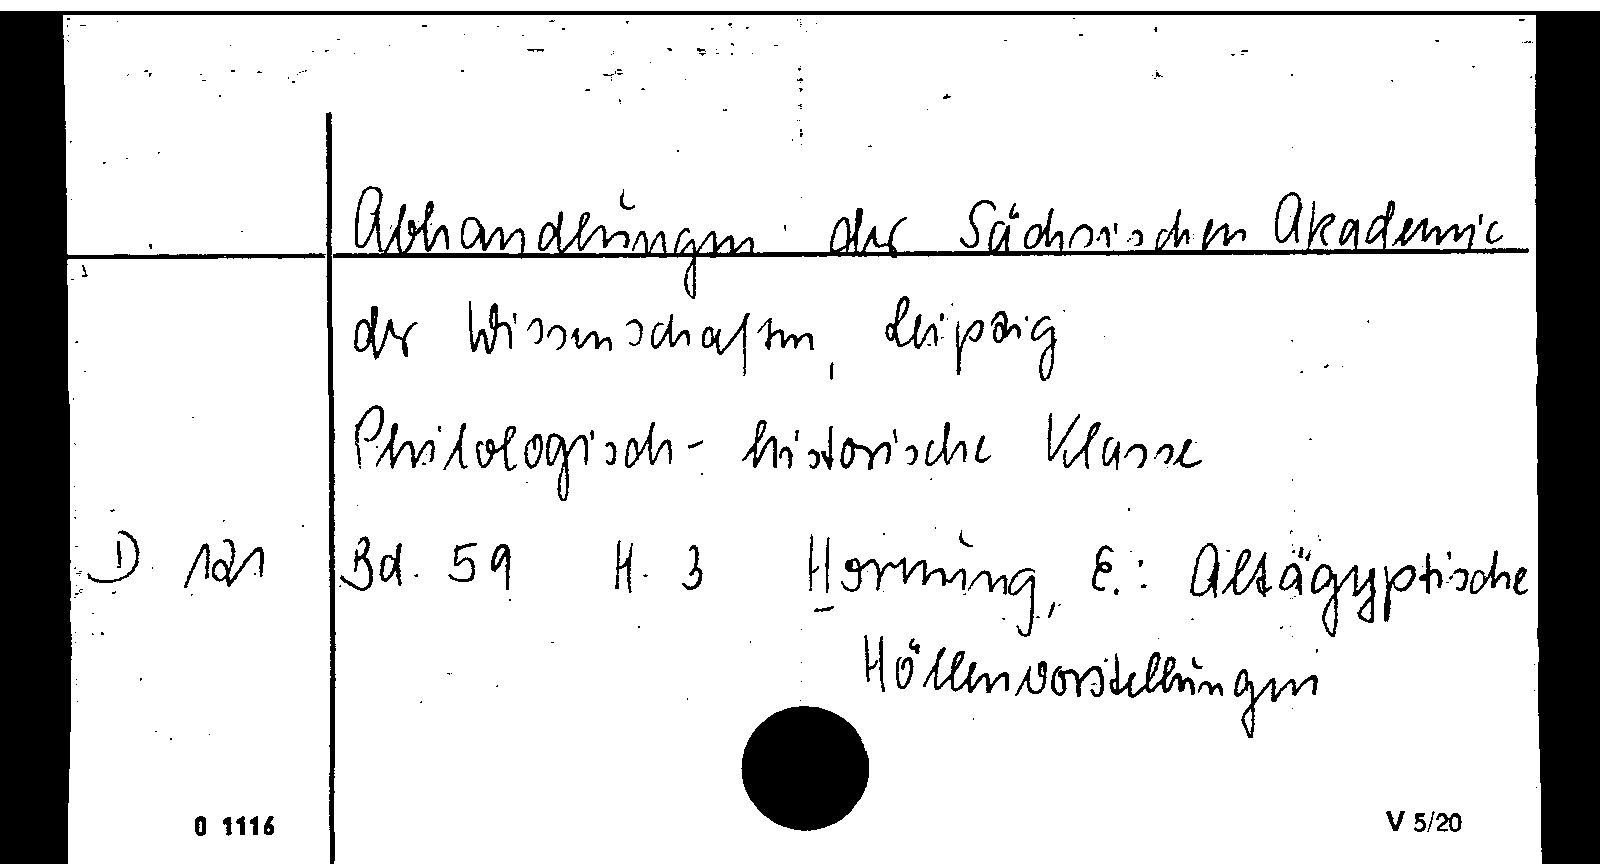 Abhandlungen der Sächsischen Akademie
der Wissenschaften, Leipzig
Philologisch-historische Klasse
D 121 Bd. 59 H. 3 Hornung, E.: Altägyptische
Höllenvorstellungen
0 1116 V 5/20